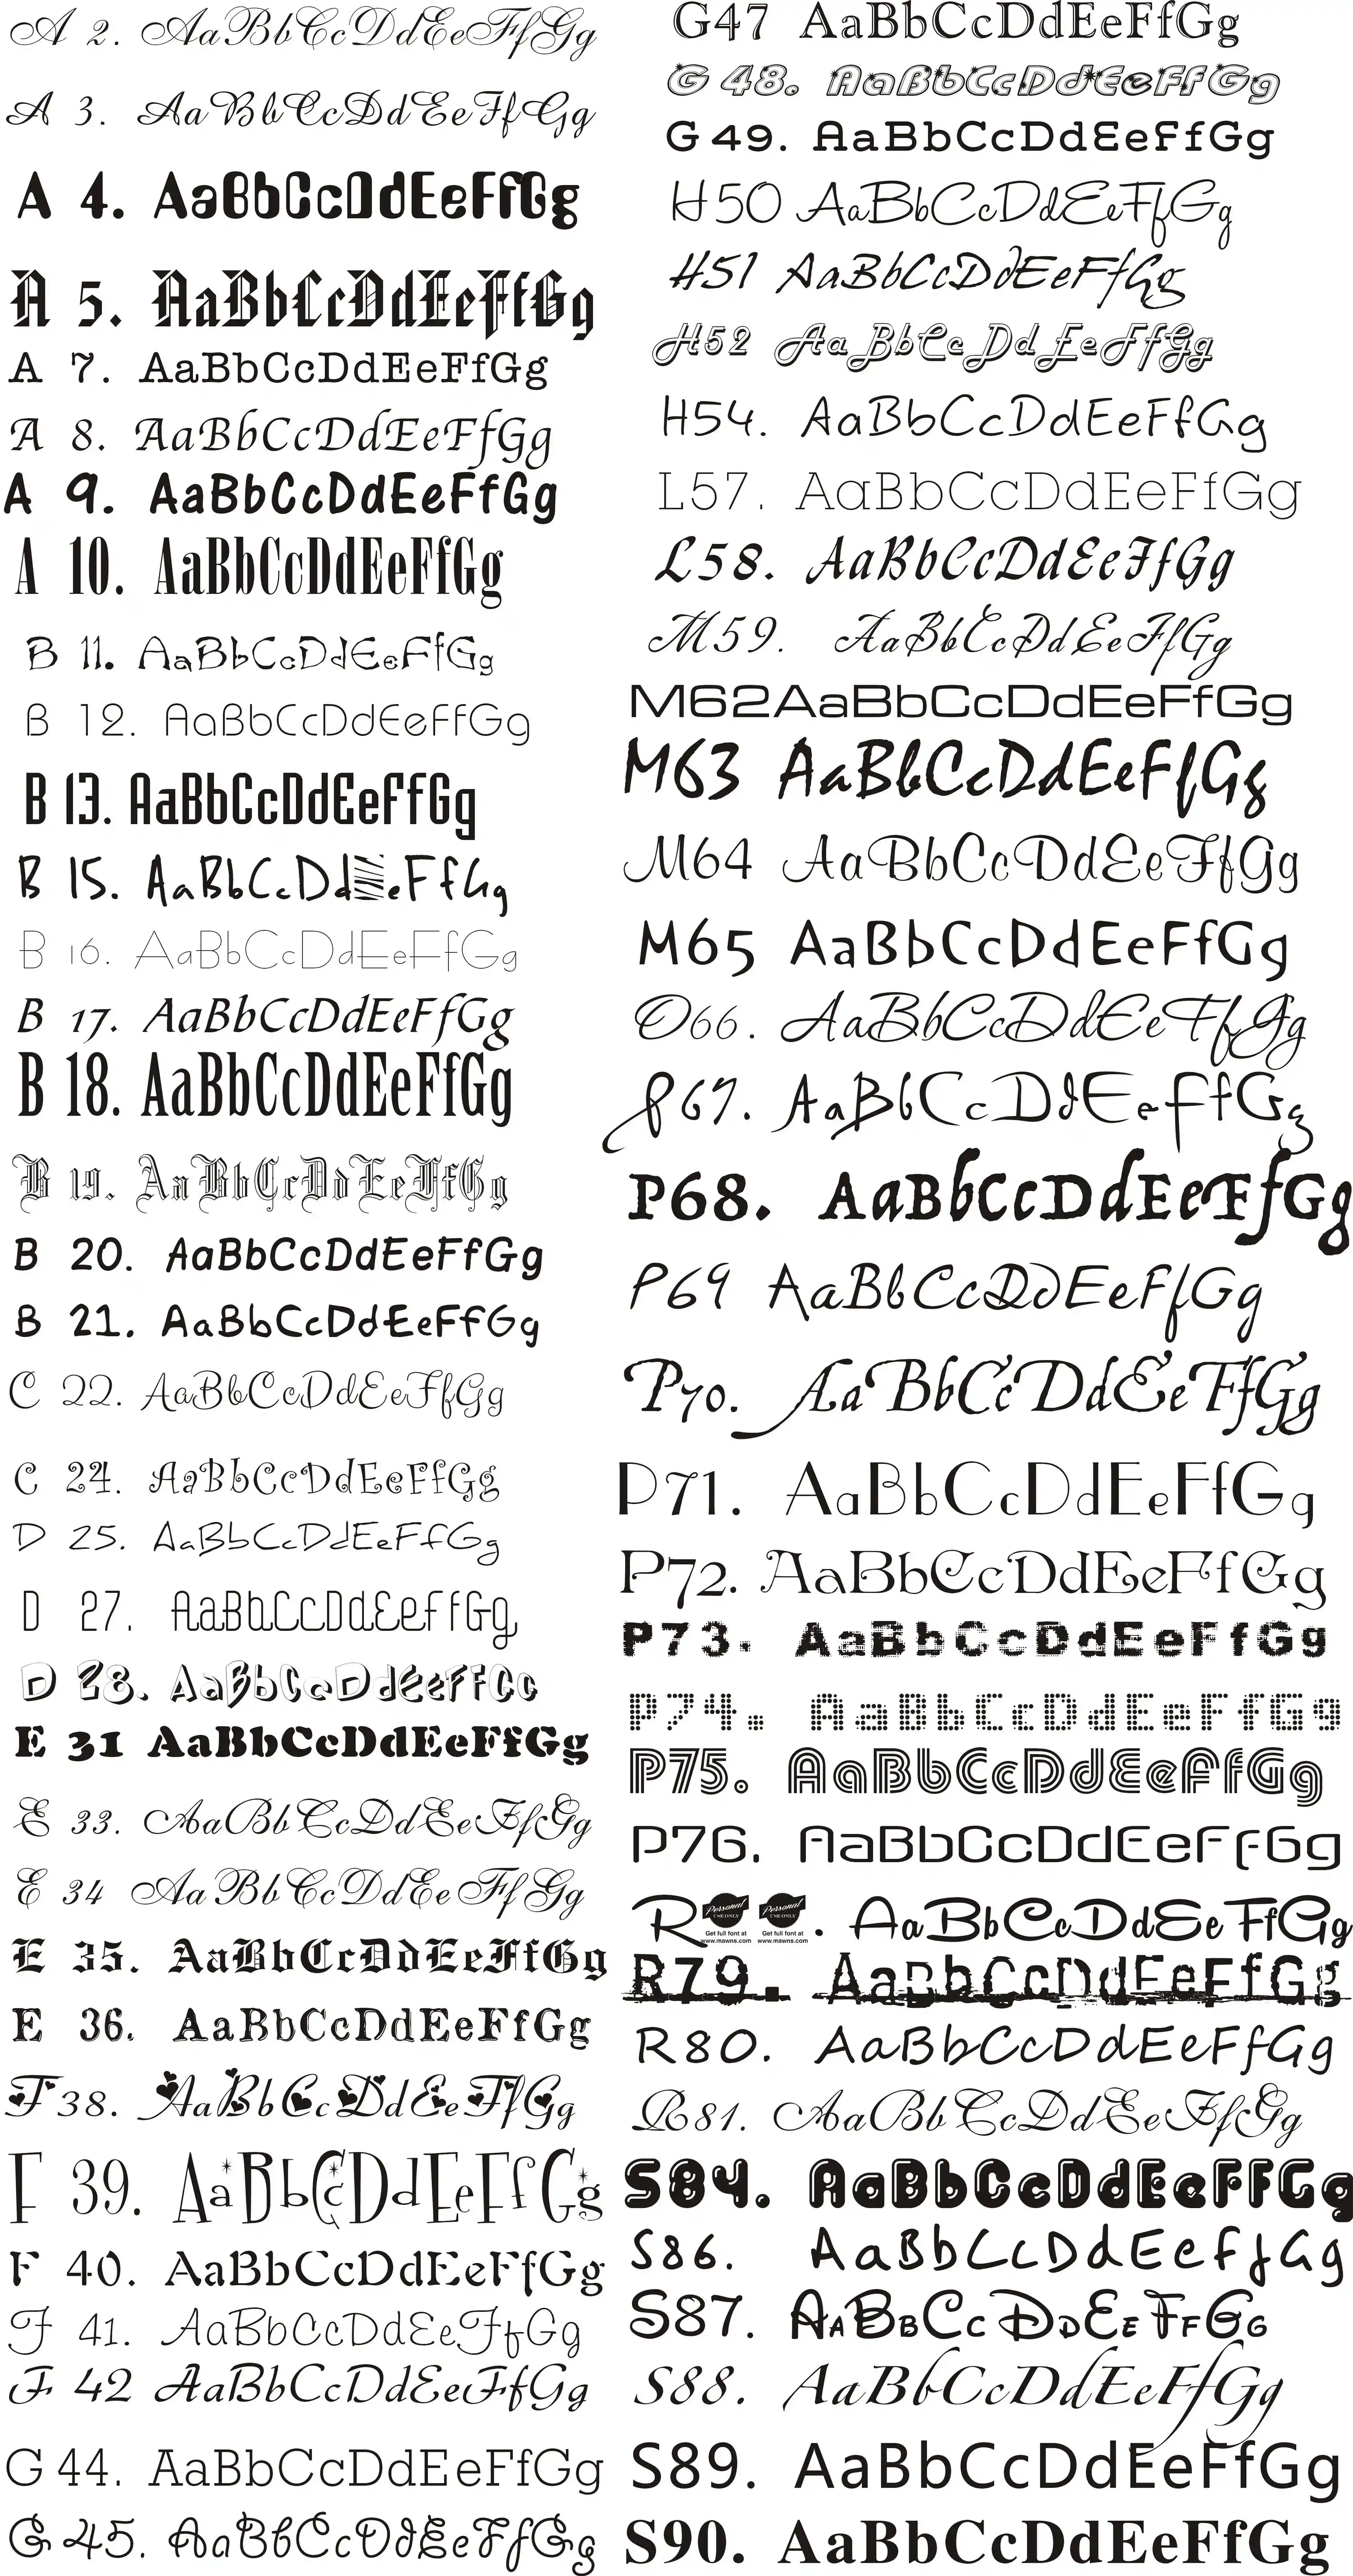 A 2. AaBbCcDdEeFfGg
A 3. AaBbCcDdEeFfGg
A 4. AaBbCcDdEeFfGg
A 5. AaBbCcDdEeFfGg
A 7. AaBbCcDdEeFfGg
A 8. AaBbCcDdEeFfGg
A 9. AaBbCcDdEeFfGg
A 10. AaBbCcDdEeFfGg
B 11. AaBbCcDdEeFfGg
B 12. AaBbCcDdEeFfGg
B 13. AaBbCcDdEeFfGg
B 15. AaBbCcDd eFfGg
B 16. AaBbCcDdEeFfGg
B 17. AaBbCcDdEeFfGg
B 18. AaBbCcDdEeFfGg
B 19. AaBbCcDdEeFfGg
B 20. AaBbCcDdEeFfGg
B 21. AaBbCcDdEeFfGg
C 22. AaBbCcDdEeFfGg
C 24. AaBbCcDdEeFfGg
D 25. AaBbCcDdEeFfGg
D 27. AaBbCcDdEeFfGg
D 28. AaBbCcDdEeFfGg
E 31 AaBbCcDdEeFfGg
E 33. AaBbCcDdEeFfGg
E 34 AaBbCcDdEeFfGg
E 35. AaBbCcDdEeFfGg
E 36. AaBbCcDdEeFfGg
F 38. AaBbCcDdEeFfGg
F 39. AaBbCcDdEeFfGg
F 40. AaBbCcDdEeFfGg
F 41. AaBbCcDdEeFfGg
F 42 AaBbCcDdEeFfGg
G 44. AaBbCcDdEeFfGg
G 45. AaBbCcDdEeFfGg
G47 AaBbCcDdEeFfGg
G 48. AaBbCcDdEeFfGg
G 49. AaBbCcDdEeFfGg
H50 AaBbCcDdEeFfGg
H51 AaBbCcDdEeFfGg
H52 AaBbCcDdEeFfGg
H54. AaBbCcDdEeFfGg
L57. AaBbCcDdEeFfGg
L58. AaBbCcDdEeFfGg
M59. AaBbCcDdEeFfGg
M62AaBbCcDdEeFfGg
M63 AaBbCcDdEeFfGg
M64 AaBbCcDdEeFfGg
M65 AaBbCcDdEeFfGg
O66. AaBbCcDdEeFfGg
P67. AaBbCcDdEeFfGg
P68. AaBbCcDdEeFfGg
P69 AaBbCcDdEeFfGg
P70. AaBbCcDdEeFfGg
P71. AaBbCcDdEeFfGg
P72. AaBbCcDdEeFfGg
P73. AaBbCcDdEeFfGg
P74. AaBbCcDdEeFfGg
P75. AaBbCcDdEeFfGg
P76. AaBbCcDdEeFfGg
R Personal USE ONLY Get full font at www.mawns.com Personal USE ONLY Get full font at www.mawns.com . AaBbCcDdEeFfGg
R79. AaBbCcDdEeFfGg
R80. AaBbCcDdEeFfGg
R81. AaBbCcDdEeFfGg
S84. AaBbCcDdEeFfGg
S86. AaBbCcDdEeFfGg
S87. AABBCCDDEEFFGG
S88. AaBbCcDdEeFfGg
S89. AaBbCcDdEeFfGg
S90. AaBbCcDdEeFfGg